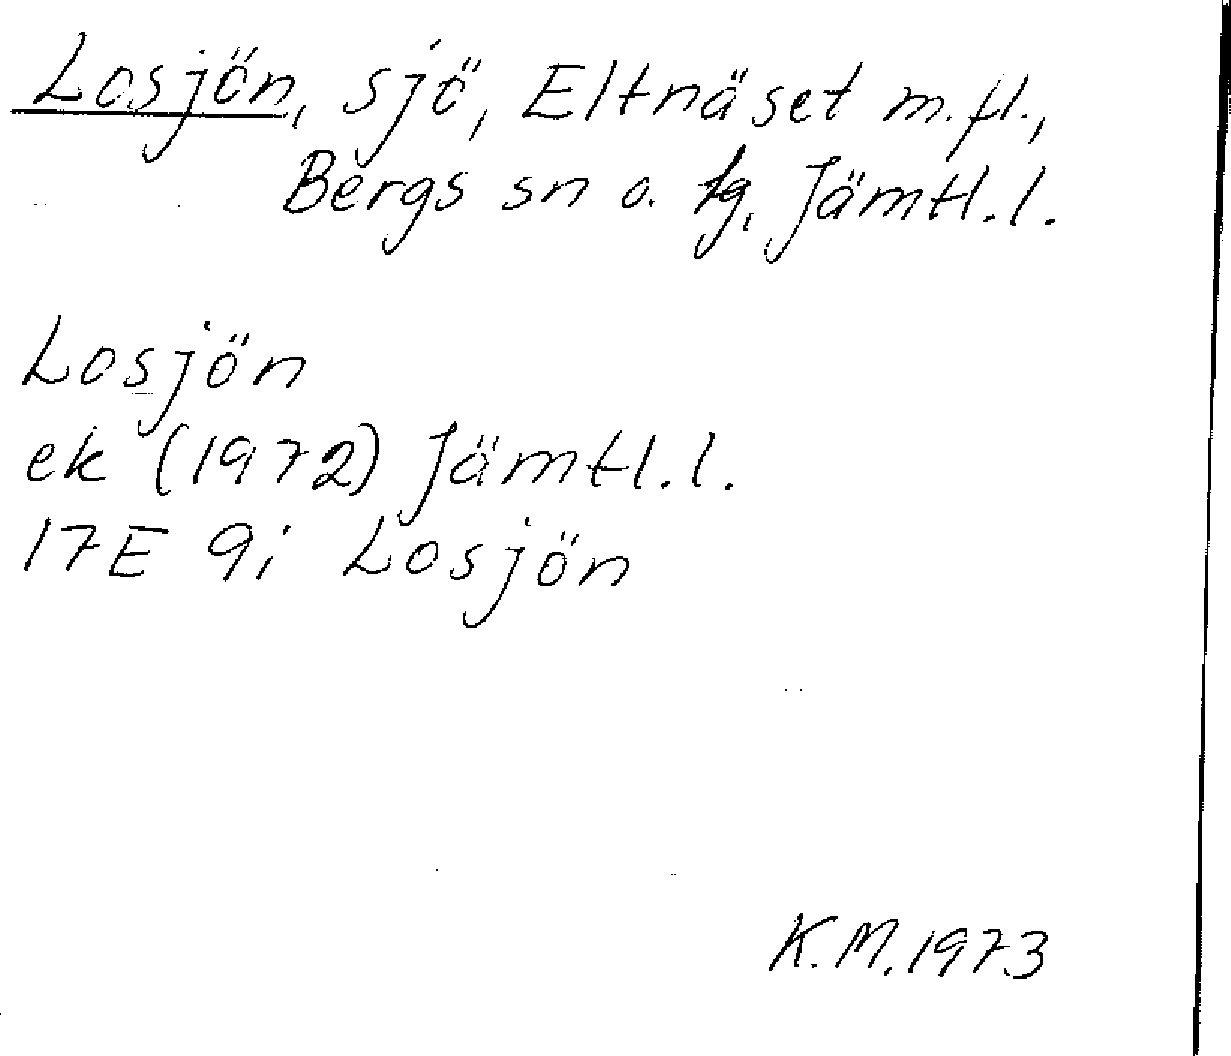 Losjön, sjö, Eltnäset m.fl.,
Bergs sn o. tg, Jämtl.l.
Losjön
ek (1972) Jämtl.l.
17E 9i Losjön
K.M. 1973